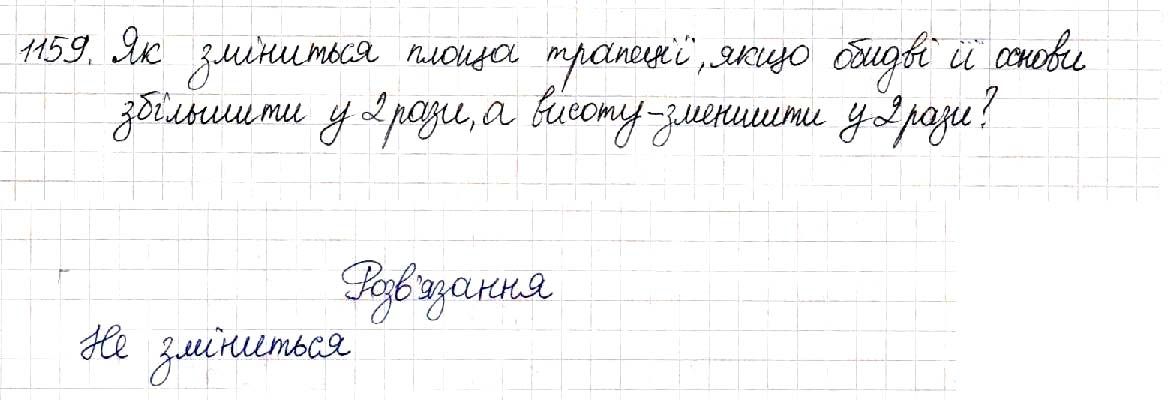 1159. Як зміниться площа трапеції, якщо обидві її основи
збільшити у 2 рази, а висоту-зменшити у 2 рази?
Розв'язання
Не зміниться